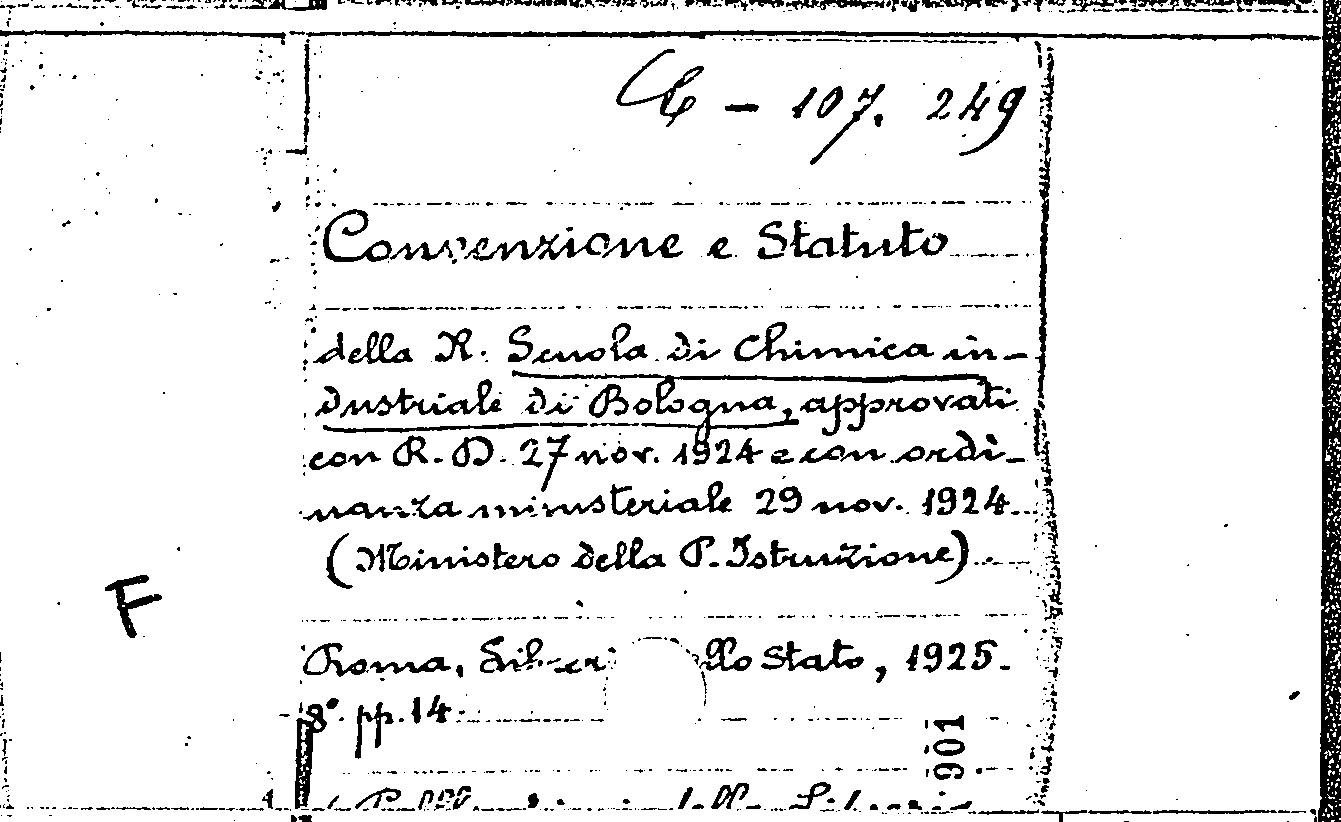 C - 107. 249
Convenzione e Statuto
della R. Scuola di Chimica in-
dustriale di Bologna, approvati
con R. D. 27 nov. 1924 e con ordi-
nanza ministeriale 29 nov. 1924.
(Ministero della P. Istruzione).
F
Roma, Stato, 1925.
8°. pp. 14.
901